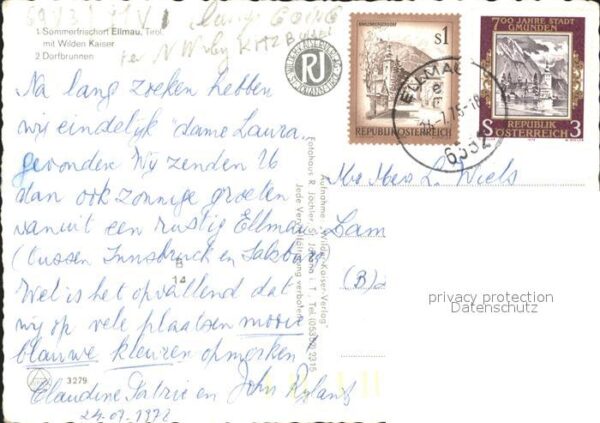 1 Sommerfrischort Ellmau, Tirol,
mit Wilden Kaiser
2 Dorfbrunnen
GOING
KITZBÜHEL
S1
REPUBLIK ÖSTERREICH
700 JAHRE STADT
GMUNDEN
REPUBLIK
S ÖSTERREICH 3
ELLMAU
6352
RJ
Na lang zoeken hebben
wij eindelijk "dame Laura"
gevonden Wij zenden U
dan ook zonnige groeten
vanuit een rustig Ellmau
(tussen Innsbruck en Salzburg
Wel is het opvallend dat
wij op vele plaatsen mooie
blauwe kleuren opmerken!
Claudine Patrie en John
B
14
3279
Aufnahme "Wilder-Kaiser-Verlag"
Fotohaus R. Jöchler, St. Johann i. T., Tel. (05352) 2315
Jede Vervielfältigung verboten
Mr Mevr L. Wiels
Lam
(B)
privacy protection
Datenschutz